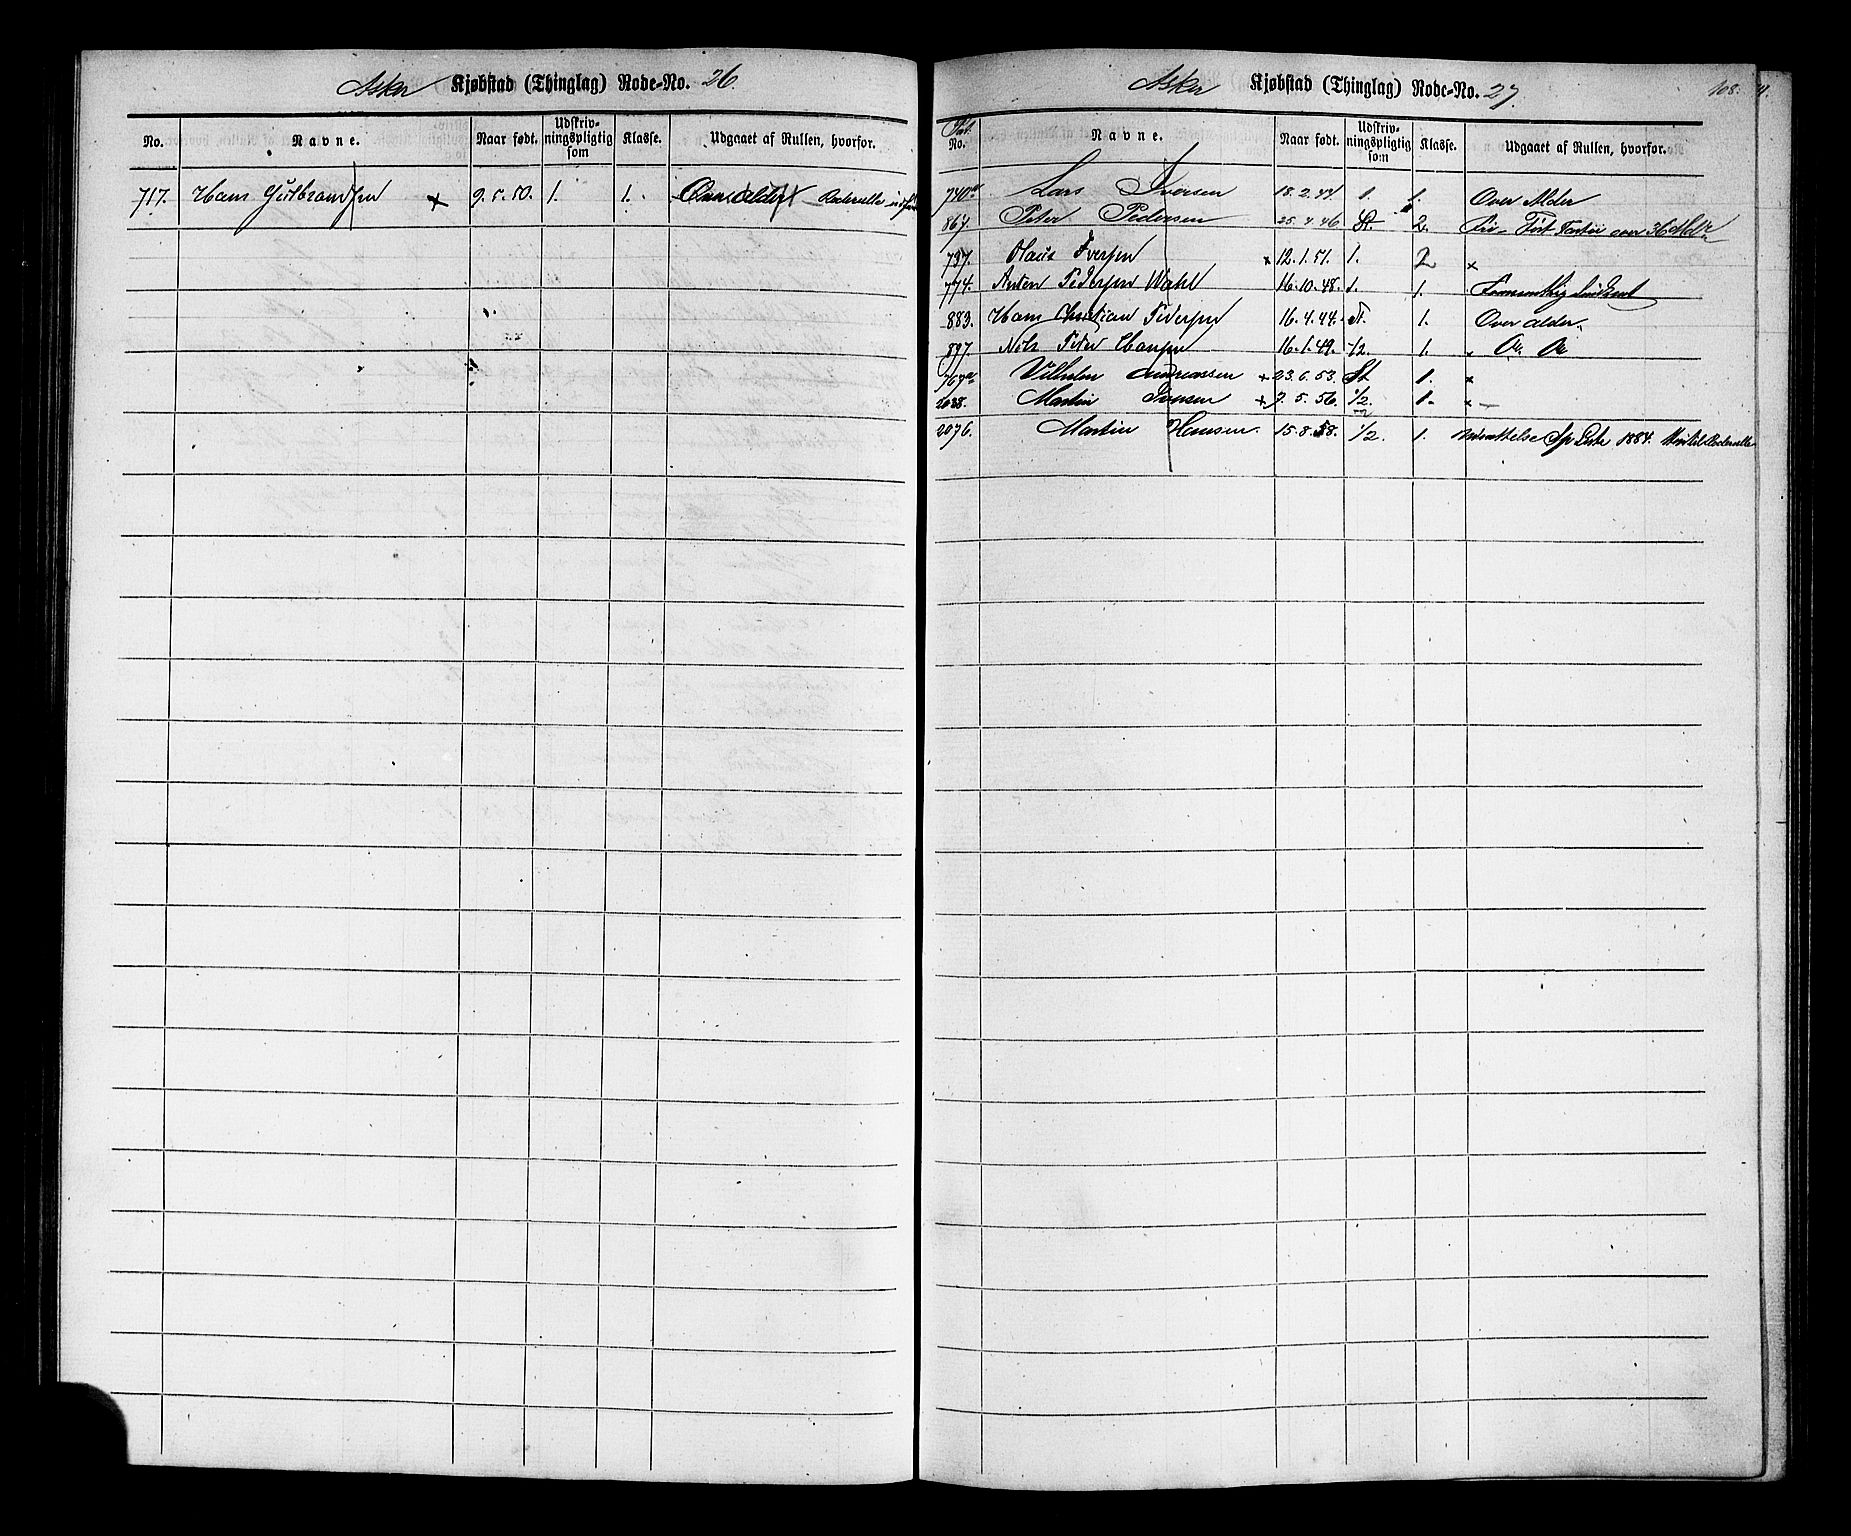 Asker Kjøbstad (Thinglag) Rode-No. 26.
No. Navne. Naar født. Udskriv-ningspligtig som Klasse. Udgaaet af Rullen, hvorfor.
717. Hans Gulbrandsen × 9.5.50. 1. 1. Over alder
Asker Kjøbstad (Thinglag) Rode-No. 27. 108.
No. Navne. Naar født. Udskriv-ningspligtig som Klasse. Udgaaet af Rullen, hvorfor.
740 Lars Iversen 18.2.44 1. 1. Over Alder
867. Peter Pedersen 25.4.46 St. 2. over 36
737. Olaus Iversen × 12.1.51. 1. 2 ×
774. Anten Pedersen Wahl 16.10.48. 1. 1.
883. Hans Christian Pedersen 16.4.44. St. 1. Over alder.
897. Nils Peter Hansen 16.1.49. 1/2. 1.
767 Vilhelm Andreassen × 23.6.53. St 1. ×
2038. Martin × 9.5.56. 1/2. 1. ×
2076. Martin Hansen. 15.8.58. 1/2. 1. 1884.